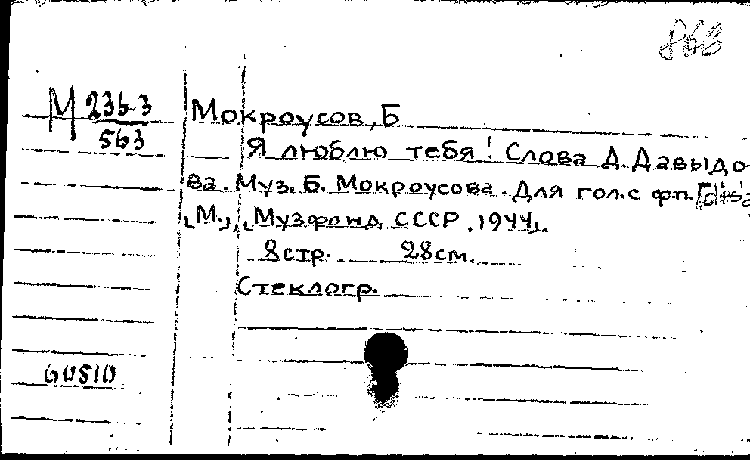 863
М 236-3
563
Мокроусов, Б
Я люблю тебя! Слова Д. Давыдо-
ва. Муз. Б. Мокроусова. Для гол. с ф.п.
[М.], [Музфонд СССР, 1944].
8 стр. 28 см.
Стеклогр.
60510